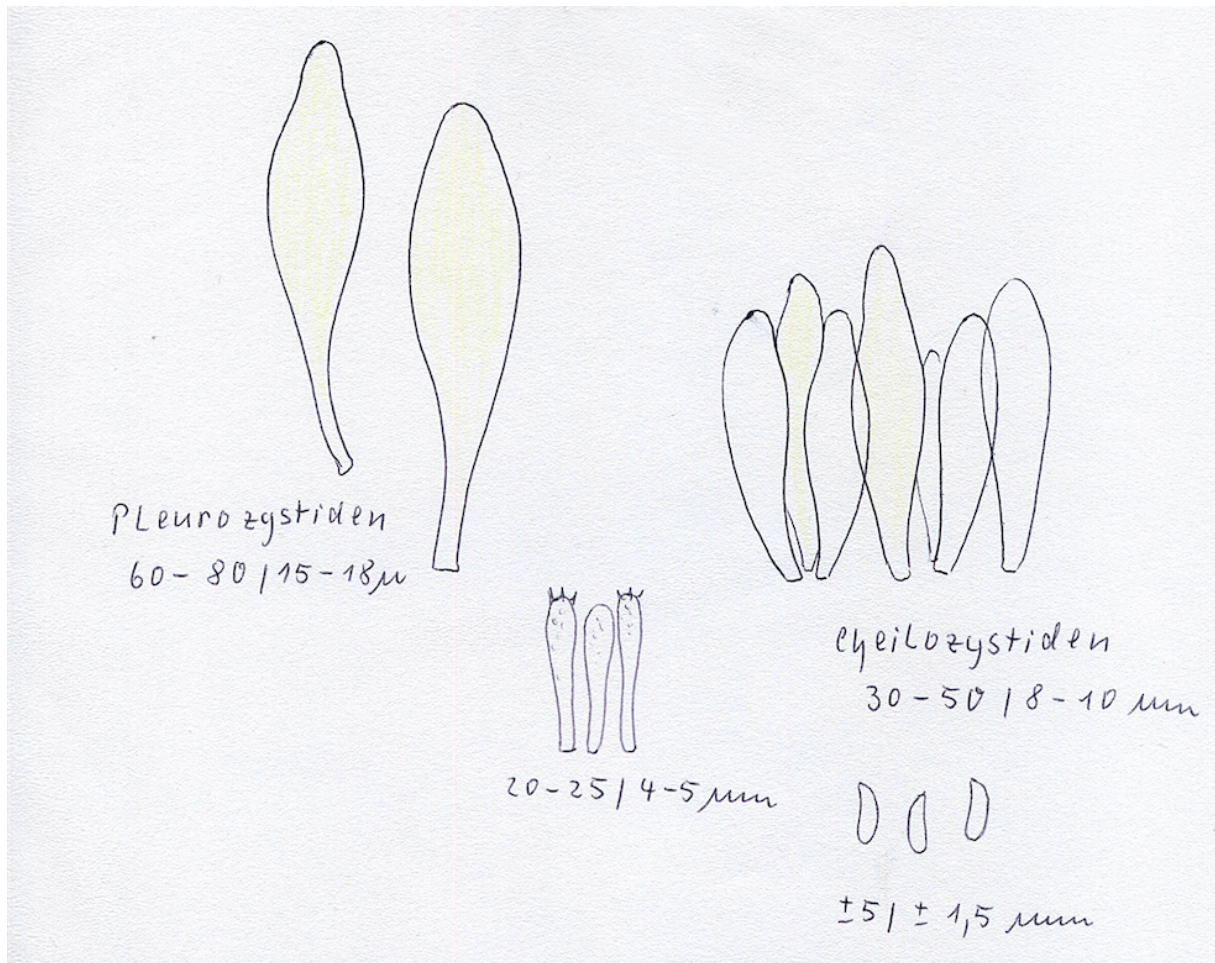 Pleurozystiden
60 - 80 / 15 - 18 µ
20 - 25 / 4 - 5 µm
Cheilozystiden
30 - 50 / 8 - 10 µm
± 5 / ± 1,5 µm